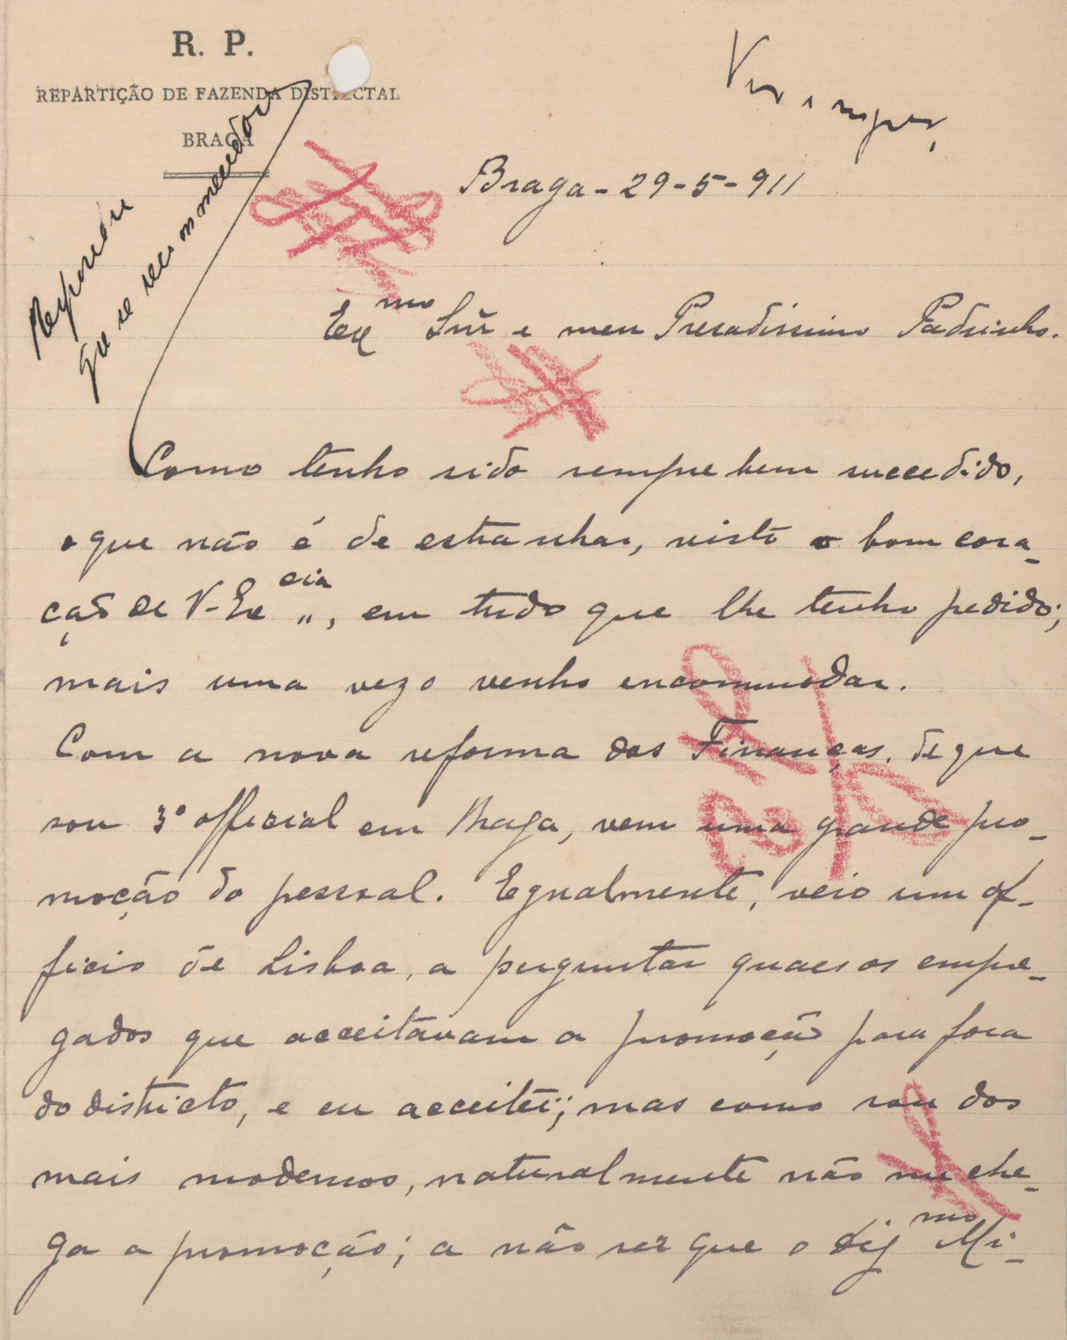 R. P.
REPARTIÇÃO DE FAZENDA DISTRICTAL
BRAGA
Responder
que se recommendou
Braga - 29-5-911
Exmo Snr e meu Presadissimo Padrinho.
Como tenho sido sempre bem succedido,
o que não é de estranhar, visto o bom cora-
ção de V. Excia,, , em tudo que lhe tenho pedido;
mais uma vez o venho encommodar.
Com a nova reforma das Finanças, de que
sou 3º official em Braga, vem uma grande pro-
moção do pessoal. Egualmente, veio um of-
ficio de Lisboa, a perguntar quaes os empre-
gados que acceitavam a promoção para fora
do districto, e eu acceitei; mas como sou dos
mais modernos, naturalmente não me che-
ga a promoção; a não ser que o digmo Mi-